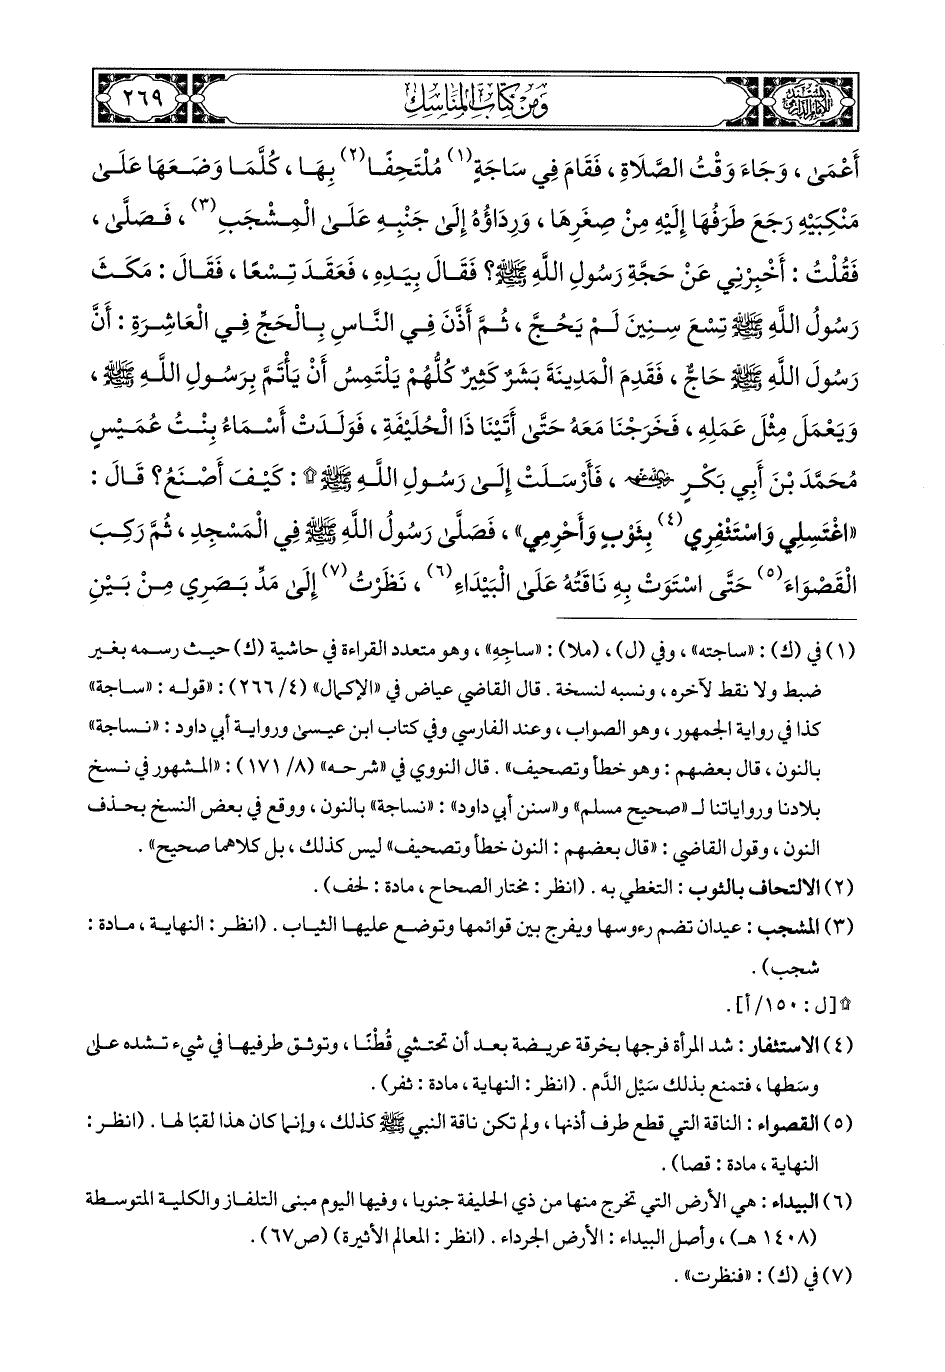 ٢٦٩
وَمِن كِتَابِ المَنَاسِكِ
أَعْمَى ، وَجَاءَ وَقْتُ الصَّلَاةِ ، فَقَامَ فِي سَاجَةٍ(١) مُلْتَحِفًا(٢) بِهَا ، كُلَّمَا وَضَعَهَا عَلَى
مَنْكِبَيْهِ رَجَعَ طَرَفُهَا إِلَيْهِ مِنْ صِغَرِهَا ، وَرِدَاؤُهُ إِلَى جَنْبِهِ عَلَى الْمِشْجَبِ(٣) ، فَصَلَّى ،
فَقُلْتُ : أَخْبِرْنِي عَنْ حَجَّةِ رَسُولِ اللَّهِ ﷺ؟ فَقَالَ بِيَدِهِ ، فَعَقَدَ تِسْعًا ، فَقَالَ : مَكَثَ
رَسُولُ اللَّهِ ﷺ تِسْعَ سِنِينَ لَمْ يَحُجَّ ، ثُمَّ أَذَّنَ فِي النَّاسِ بِالْحَجِّ فِي الْعَاشِرَةِ : أَنَّ
رَسُولَ اللَّهِ ﷺ حَاجٌّ ، فَقَدِمَ الْمَدِينَةَ بَشَرٌ كَثِيرٌ كُلُّهُمْ يَلْتَمِسُ أَنْ يَأْتَمَّ بِرَسُولِ اللَّهِ ﷺ ،
وَيَعْمَلَ مِثْلَ عَمَلِهِ ، فَخَرَجْنَا مَعَهُ حَتَّى أَتَيْنَا ذَا الْحُلَيْفَةِ ، فَوَلَدَتْ أَسْمَاءُ بِنْتُ عُمَيْسٍ
مُحَمَّدَ بْنَ أَبِي بَكْرٍ ، فَأَرْسَلَتْ إِلَى رَسُولِ اللَّهِ ﷺ ۩ : كَيْفَ أَصْنَعُ؟ قَالَ :
«اغْتَسِلِي وَاسْتَثْفِرِي(٤) بِثَوْبٍ وَأَحْرِمِي» ، فَصَلَّى رَسُولُ اللَّهِ ﷺ فِي الْمَسْجِدِ ، ثُمَّ رَكِبَ
الْقَصْوَاءَ(٥) حَتَّى اسْتَوَتْ بِهِ نَاقَتُهُ عَلَى الْبَيْدَاءِ(٦) ، نَظَرْتُ(٧) إِلَى مَدِّ بَصَرِي مِنْ بَيْنِ
(١) في (ك) : «ساجته» ، وفي (ل) ، (ملا) : «ساجِهِ» ، وهو متعدد القراءة في حاشية (ك) حيث رسمه بغير
ضبط ولا نقط لآخره ، ونسبه لنسخة . قال القاضي عياض في «الإكمال» (٤/ ٢٦٦) : «قوله : «ساجة»
كذا في رواية الجمهور ، وهو الصواب ، وعند الفارسي وفي كتاب ابن عيسى ورواية أبي داود : «نساجة»
بالنون ، قال بعضهم : وهو خطأ وتصحيف» . قال النووي في «شرحه» (٨/ ١٧١) : «المشهور في نسخ
بلادنا ورواياتنا لـ «صحيح مسلم» و«سنن أبي داود» : «نساجة» بالنون ، ووقع في بعض النسخ بحذف
النون ، وقول القاضي : «قال بعضهم : النون خطأ وتصحيف» ليس كذلك ، بل كلاهما صحيح» .
(٢) الالتحاف بالثوب : التغطي به . (انظر : مختار الصحاح ، مادة : لحف) .
(٣) المشجب : عيدان تضم رءوسها ويفرج بين قوائمها وتوضع عليها الثياب . (انظر : النهاية ، مادة :
شجب) .
۩ [ل : ١٥٠/ أ] .
(٤) الاستثفار : شد المرأة فرجها بخرقة عريضة بعد أن تحتشي قُطْنًا ، وتوثق طرفيها في شيء تشده على
وسطها ، فتمنع بذلك سَيْل الدَّم . (انظر : النهاية ، مادة : ثفر) .
(٥) القصواء : الناقة التي قطع طرف أذنها ، ولم تكن ناقة النبي ﷺ كذلك ، وإنما كان هذا لقبًا لها . (انظر :
النهاية ، مادة : قصا) .
(٦) البيداء : هي الأرض التي تخرج منها من ذي الحليفة جنوبا ، وفيها اليوم مبنى التلفاز والكلية المتوسطة
(١٤٠٨ هـ) ، وأصل البيداء : الأرض الجرداء . (انظر : المعالم الأثيرة) (ص٦٧) .
(٧) في (ك) : «فنظرت» .